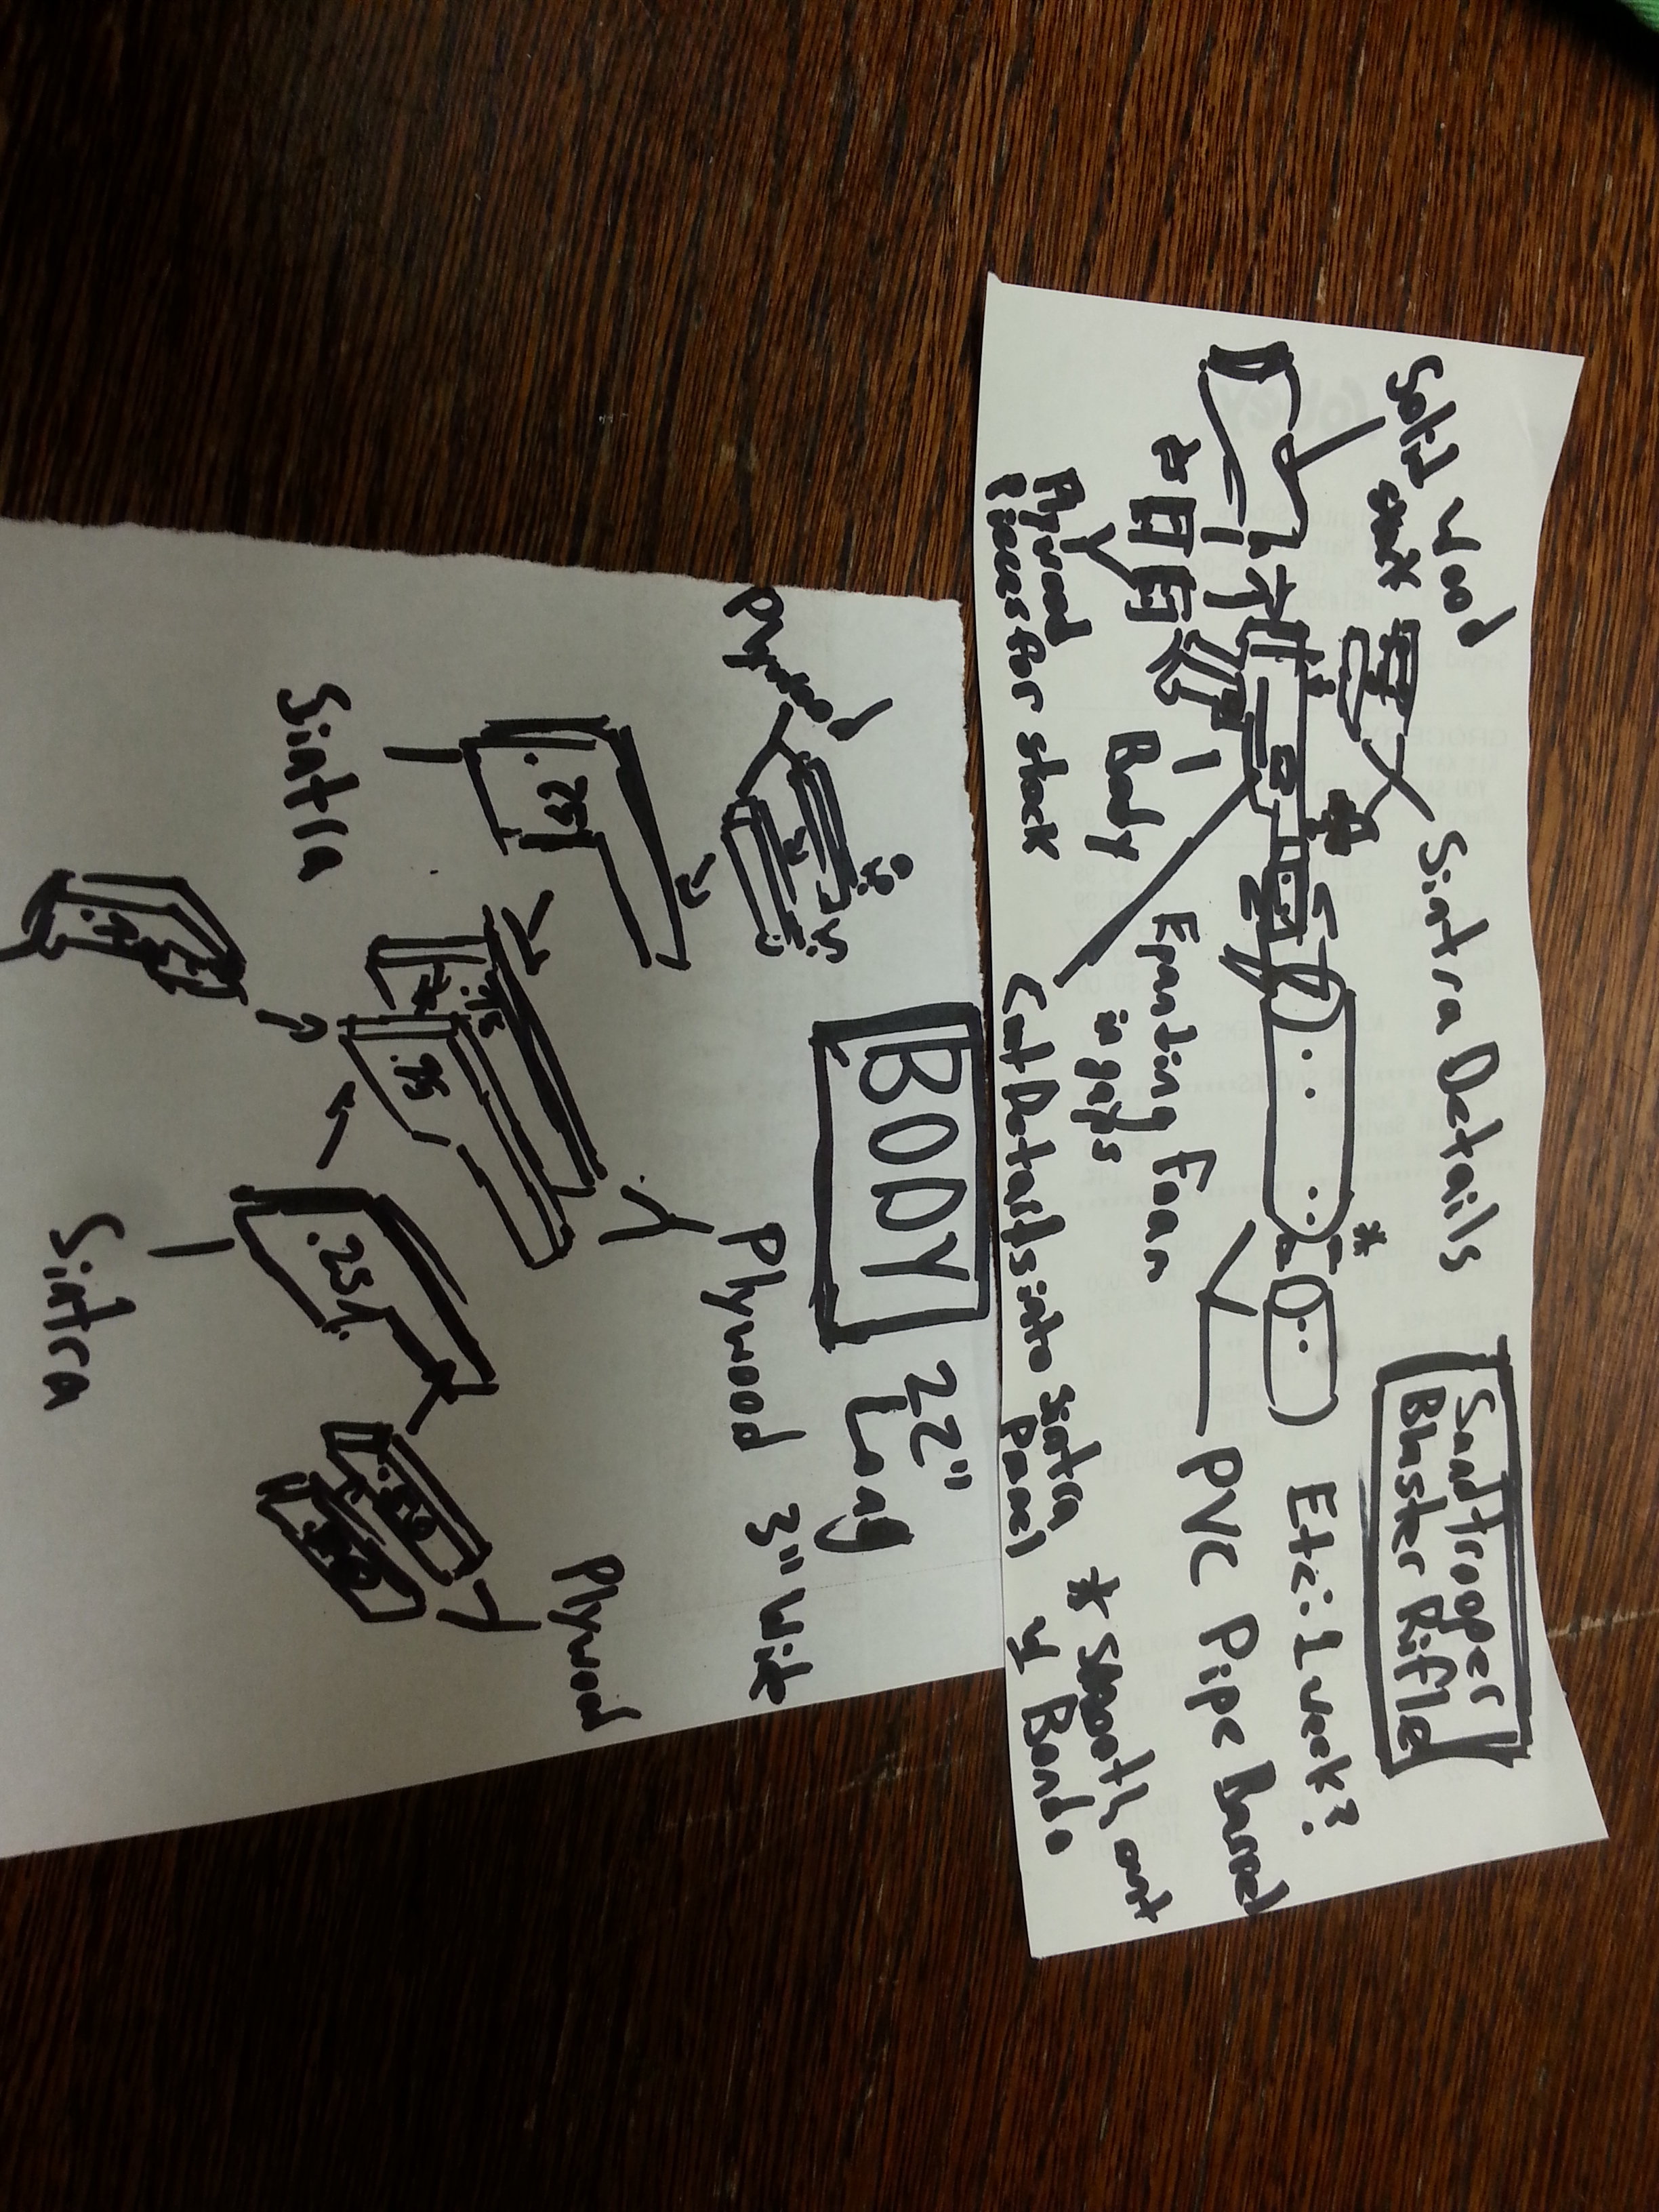 Sandtrooper
Blaster Rifle
Solid Wood
Sintra Details
Etc: 1 week?
PVC Pipe Barrel
Body
Expanding Foam
in gaps
Plywood
Pieces for stock
Cut Details into Sintra
Panel
* Smooth out
w Bondo
BODY
22"
Long
Plywood 3" Wide
Plywood
Sintra
.25
.75
.75
.25
Sintra
Plywood